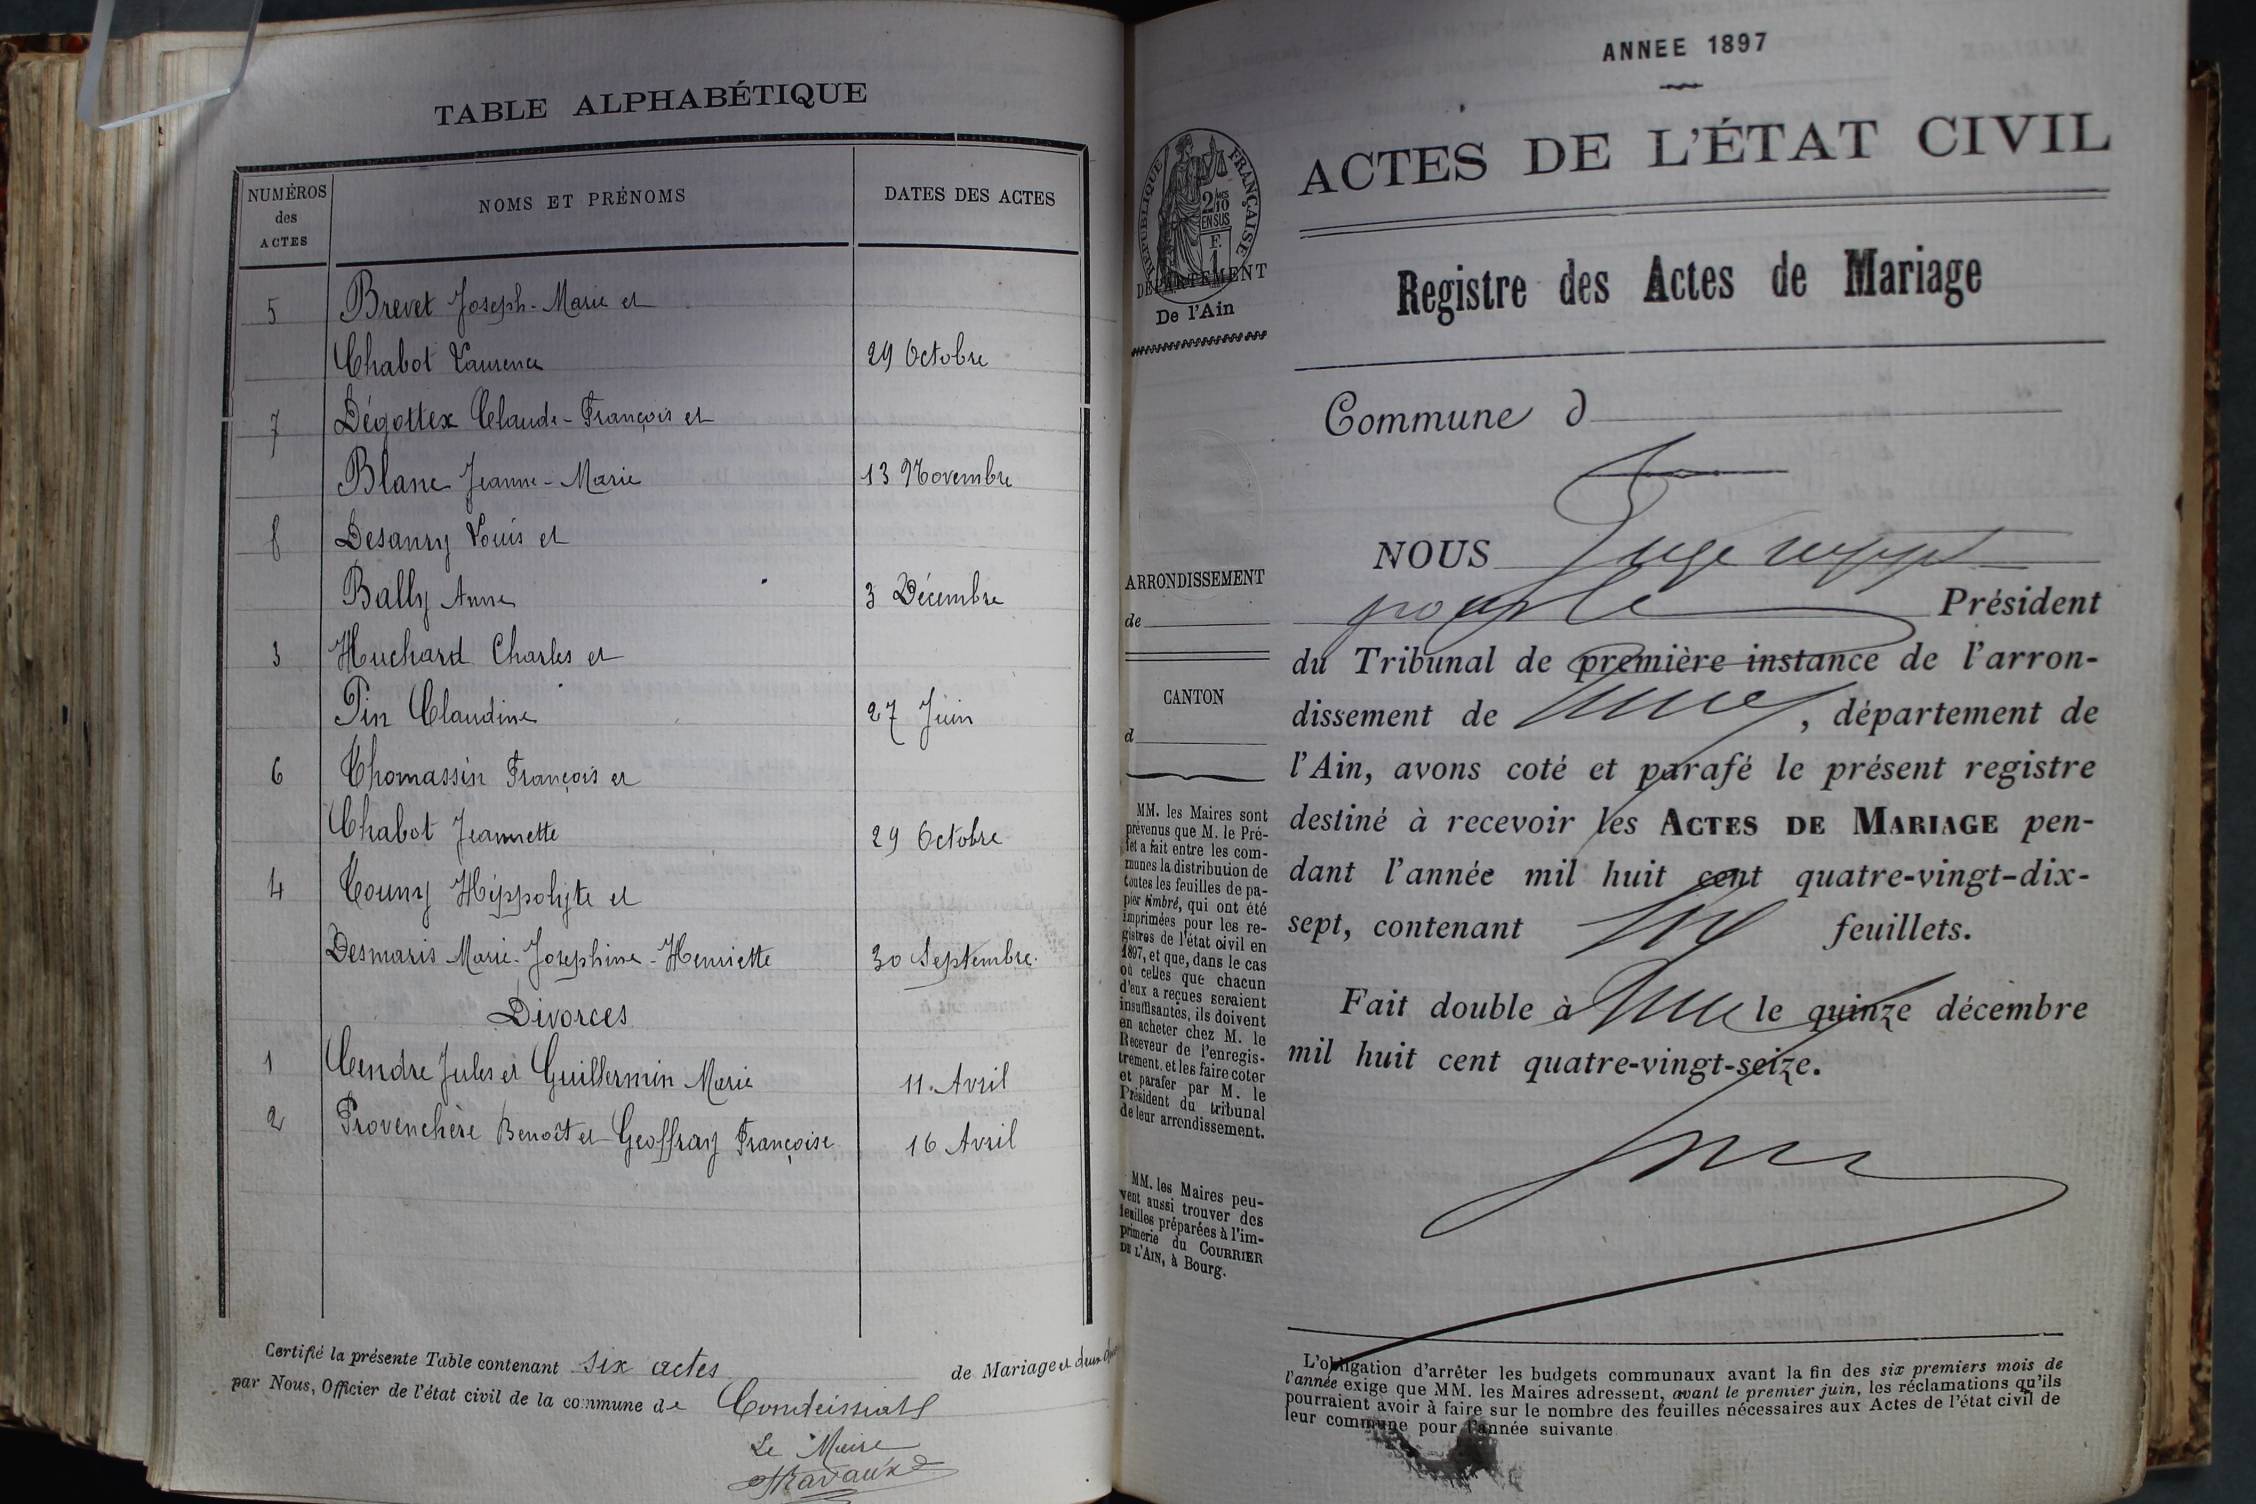 TABLE ALPHABÉTIQUE
NUMÉROS
des
ACTES
NOMS ET PRÉNOMS
DATES DES ACTES
5 Brevet Joseph-Marie et
Chabot Laurence 29 Octobre
7 Dégottex Claude-François et
Blanc Jeanne-Marie 13 Novembre
8 Desanry Louis et
Bally Anne 3 Décembre
3 Huchard Charles et
Pin Claudine 27 Juin
6 Thomassin François et
Chabot Jeannette 29 Octobre
4 Touny Hippolyte et
Desmaris Marie-Joséphine-Henriette 30 Septembre
Divorces
1 Cendre Jules et Guillermin Marie 11 Avril
2 Provenchère Benoît et Geoffray Françoise 16 Avril
Certifié la présente Table contenant six actes de Mariage et deux
par Nous, Officier de l'état civil de la commune de Condeissiat
Le Maire
ANNEE 1897
RÉPUBLIQUE FRANÇAISE
2/10
EN SUS
F.
1
DÉPARTEMENT
De l'Ain
ARRONDISSEMENT
de
CANTON
d
MM. les Maires sont
prévenus que M. le Pré-
fet a fait entre les com-
munes la distribution de
toutes les feuilles de pa-
pier timbré, qui ont été
imprimées pour les re-
gistres de l'état civil en
1897, et que, dans le cas
où celles que chacun
d'eux a reçues seraient
insuffisantes, ils doivent
en acheter chez M. le
Receveur de l'enregis-
trement, et les faire coter
et parafer par M. le
Président du tribunal
de leur arrondissement.
MM. les Maires peu-
vent aussi trouver des
feuilles préparées à l'im-
primerie du COURRIER
DE L'AIN, à Bourg.
ACTES DE L'ÉTAT CIVIL
Registre des Actes de Mariage
Commune d
NOUS Juge suppt
pour le Président
du Tribunal de première instance de l'arron-
dissement de , département de
l'Ain, avons coté et parafé le présent registre
destiné à recevoir les ACTES DE MARIAGE pen-
dant l'année mil huit cent quatre-vingt-dix-
sept, contenant feuillets.
Fait double à le quinze décembre
mil huit cent quatre-vingt-seize.
L'obligation d'arrêter les budgets communaux avant la fin des six premiers mois de
l'année exige que MM. les Maires adressent, avant le premier juin, les réclamations qu'ils
pourraient avoir à faire sur le nombre des feuilles nécessaires aux Actes de l'état civil de
leur commune pour l'année suivante